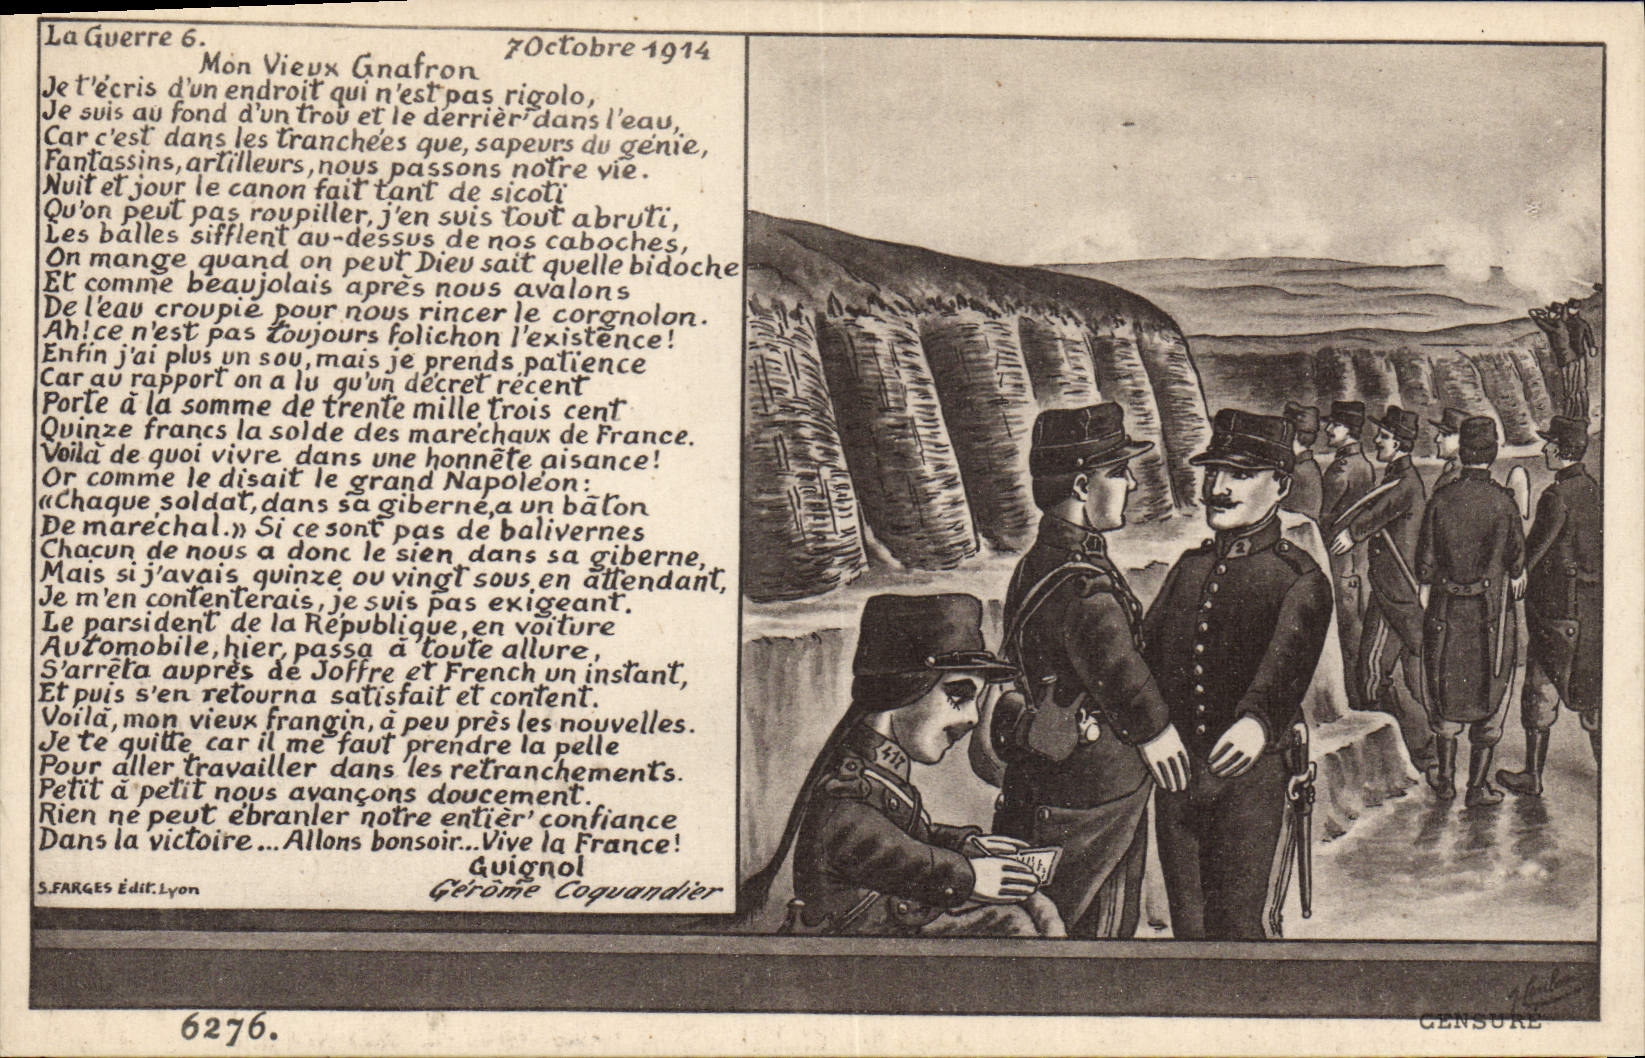 La Guerre 6.
7 Octobre 1914
Mon Vieux Gnafron
Je t'écris d'un endroit qui n'est pas rigolo,
Je suis au fond d'un trou et le derrièr' dans l'eau,
Car c'est dans les tranchées que, sapeurs du génie,
Fantassins, artilleurs, nous passons notre vie.
Nuit et jour le canon fait tant de sicoti
Qu'on peut pas roupiller, j'en suis tout abruti,
Les balles sifflent au-dessus de nos caboches,
On mange quand on peut Dieu sait quelle bidoche
Et comme beaujolais après nous avalons
De l'eau croupie pour nous rincer le corgnolon.
Ah! ce n'est pas toujours folichon l'existence!
Enfin j'ai plus un sou, mais je prends patience
Car au rapport on a lu qu'un décret récent
Porte à la somme de trente mille trois cent
Quinze francs la solde des maréchaux de France.
Voilà de quoi vivre dans une honnête aisance!
Or comme le disait le grand Napoléon:
«Chaque soldat, dans sa giberne, a un bâton
De maréchal.» Si ce sont pas de balivernes
Chacun de nous a donc le sien dans sa giberne,
Mais si j'avais quinze ou vingt sous en attendant,
Je m'en contenterais, je suis pas exigeant.
Le parsident de la République, en voiture
Automobile, hier, passa à toute allure,
S'arrêta auprès de Joffre et French un instant,
Et puis s'en retourna satisfait et content.
Voilà, mon vieux frangin, à peu près les nouvelles.
Je te quitte car il me faut prendre la pelle
Pour aller travailler dans les retranchements.
Petit à petit nous avançons doucement.
Rien ne peut ébranler notre entièr' confiance
Dans la victoire... Allons bonsoir... Vive la France!
Guignol
Gérôme Coquandier
S. FARGES Édit. Lyon
417
2
6276.
CENSURÉ